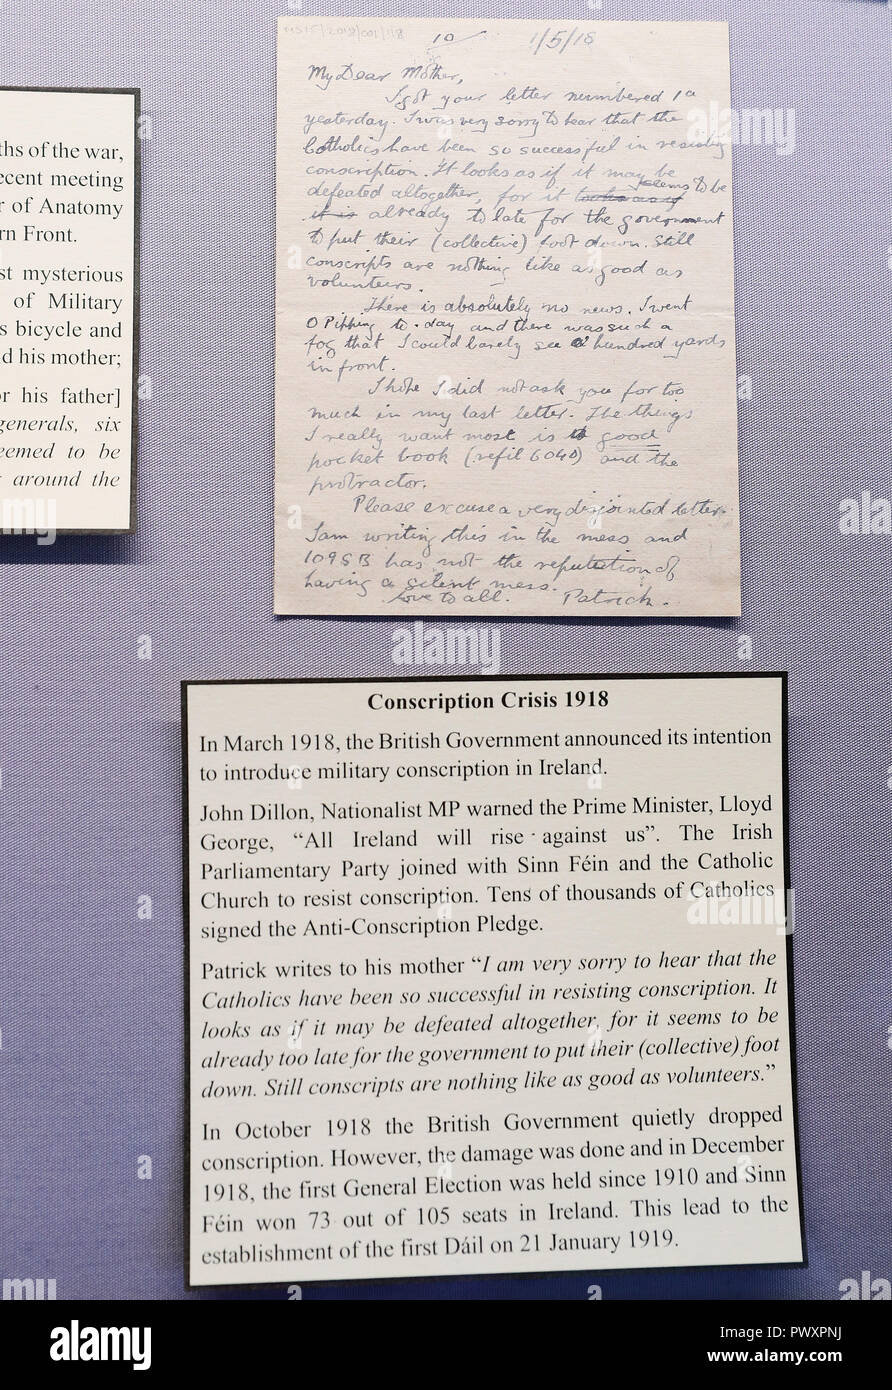 MS15/2018/001/1/8
10
1/5/18
My Dear Mother,
I got your letter numbered 1a
yesterday. I was very sorry to hear that the
Catholics have been so successful in resisting
conscription. It looks as if it may be
defeated altogether, for it looks as if seems to be
it is already to late for the government
to put their (collective) foot down. Still
conscripts are nothing like as good as
volunteers.
There is absolutely no news. I went
O Pipping to-day and there was such a
fog that I could barely see a hundred yards
in front.
I hope I did not ask you for too
much in my last letter. The things
I really want most is a good
pocket book (refil 6040) and the
protractor.
Please excuse a very disjointed letter.
I am writing this in the mess and
109SB has not the reputation of
having a silent mess.
Love to all. Patrick.
ths of the war,
ecent meeting
r of Anatomy
rn Front.
st mysterious
of Military
s bicycle and
d his mother;
or his father]
generals, six
eemed to be
around the
Conscription Crisis 1918
In March 1918, the British Government announced its intention
to introduce military conscription in Ireland.
John Dillon, Nationalist MP warned the Prime Minister, Lloyd
George, “All Ireland will rise against us”. The Irish
Parliamentary Party joined with Sinn Féin and the Catholic
Church to resist conscription. Tens of thousands of Catholics
signed the Anti-Conscription Pledge.
Patrick writes to his mother “I am very sorry to hear that the
Catholics have been so successful in resisting conscription. It
looks as if it may be defeated altogether, for it seems to be
already too late for the government to put their (collective) foot
down. Still conscripts are nothing like as good as volunteers.”
In October 1918 the British Government quietly dropped
conscription. However, the damage was done and in December
1918, the first General Election was held since 1910 and Sinn
Féin won 73 out of 105 seats in Ireland. This lead to the
establishment of the first Dáil on 21 January 1919.
alamy
Image ID: PWXPNJ
www.alamy.com